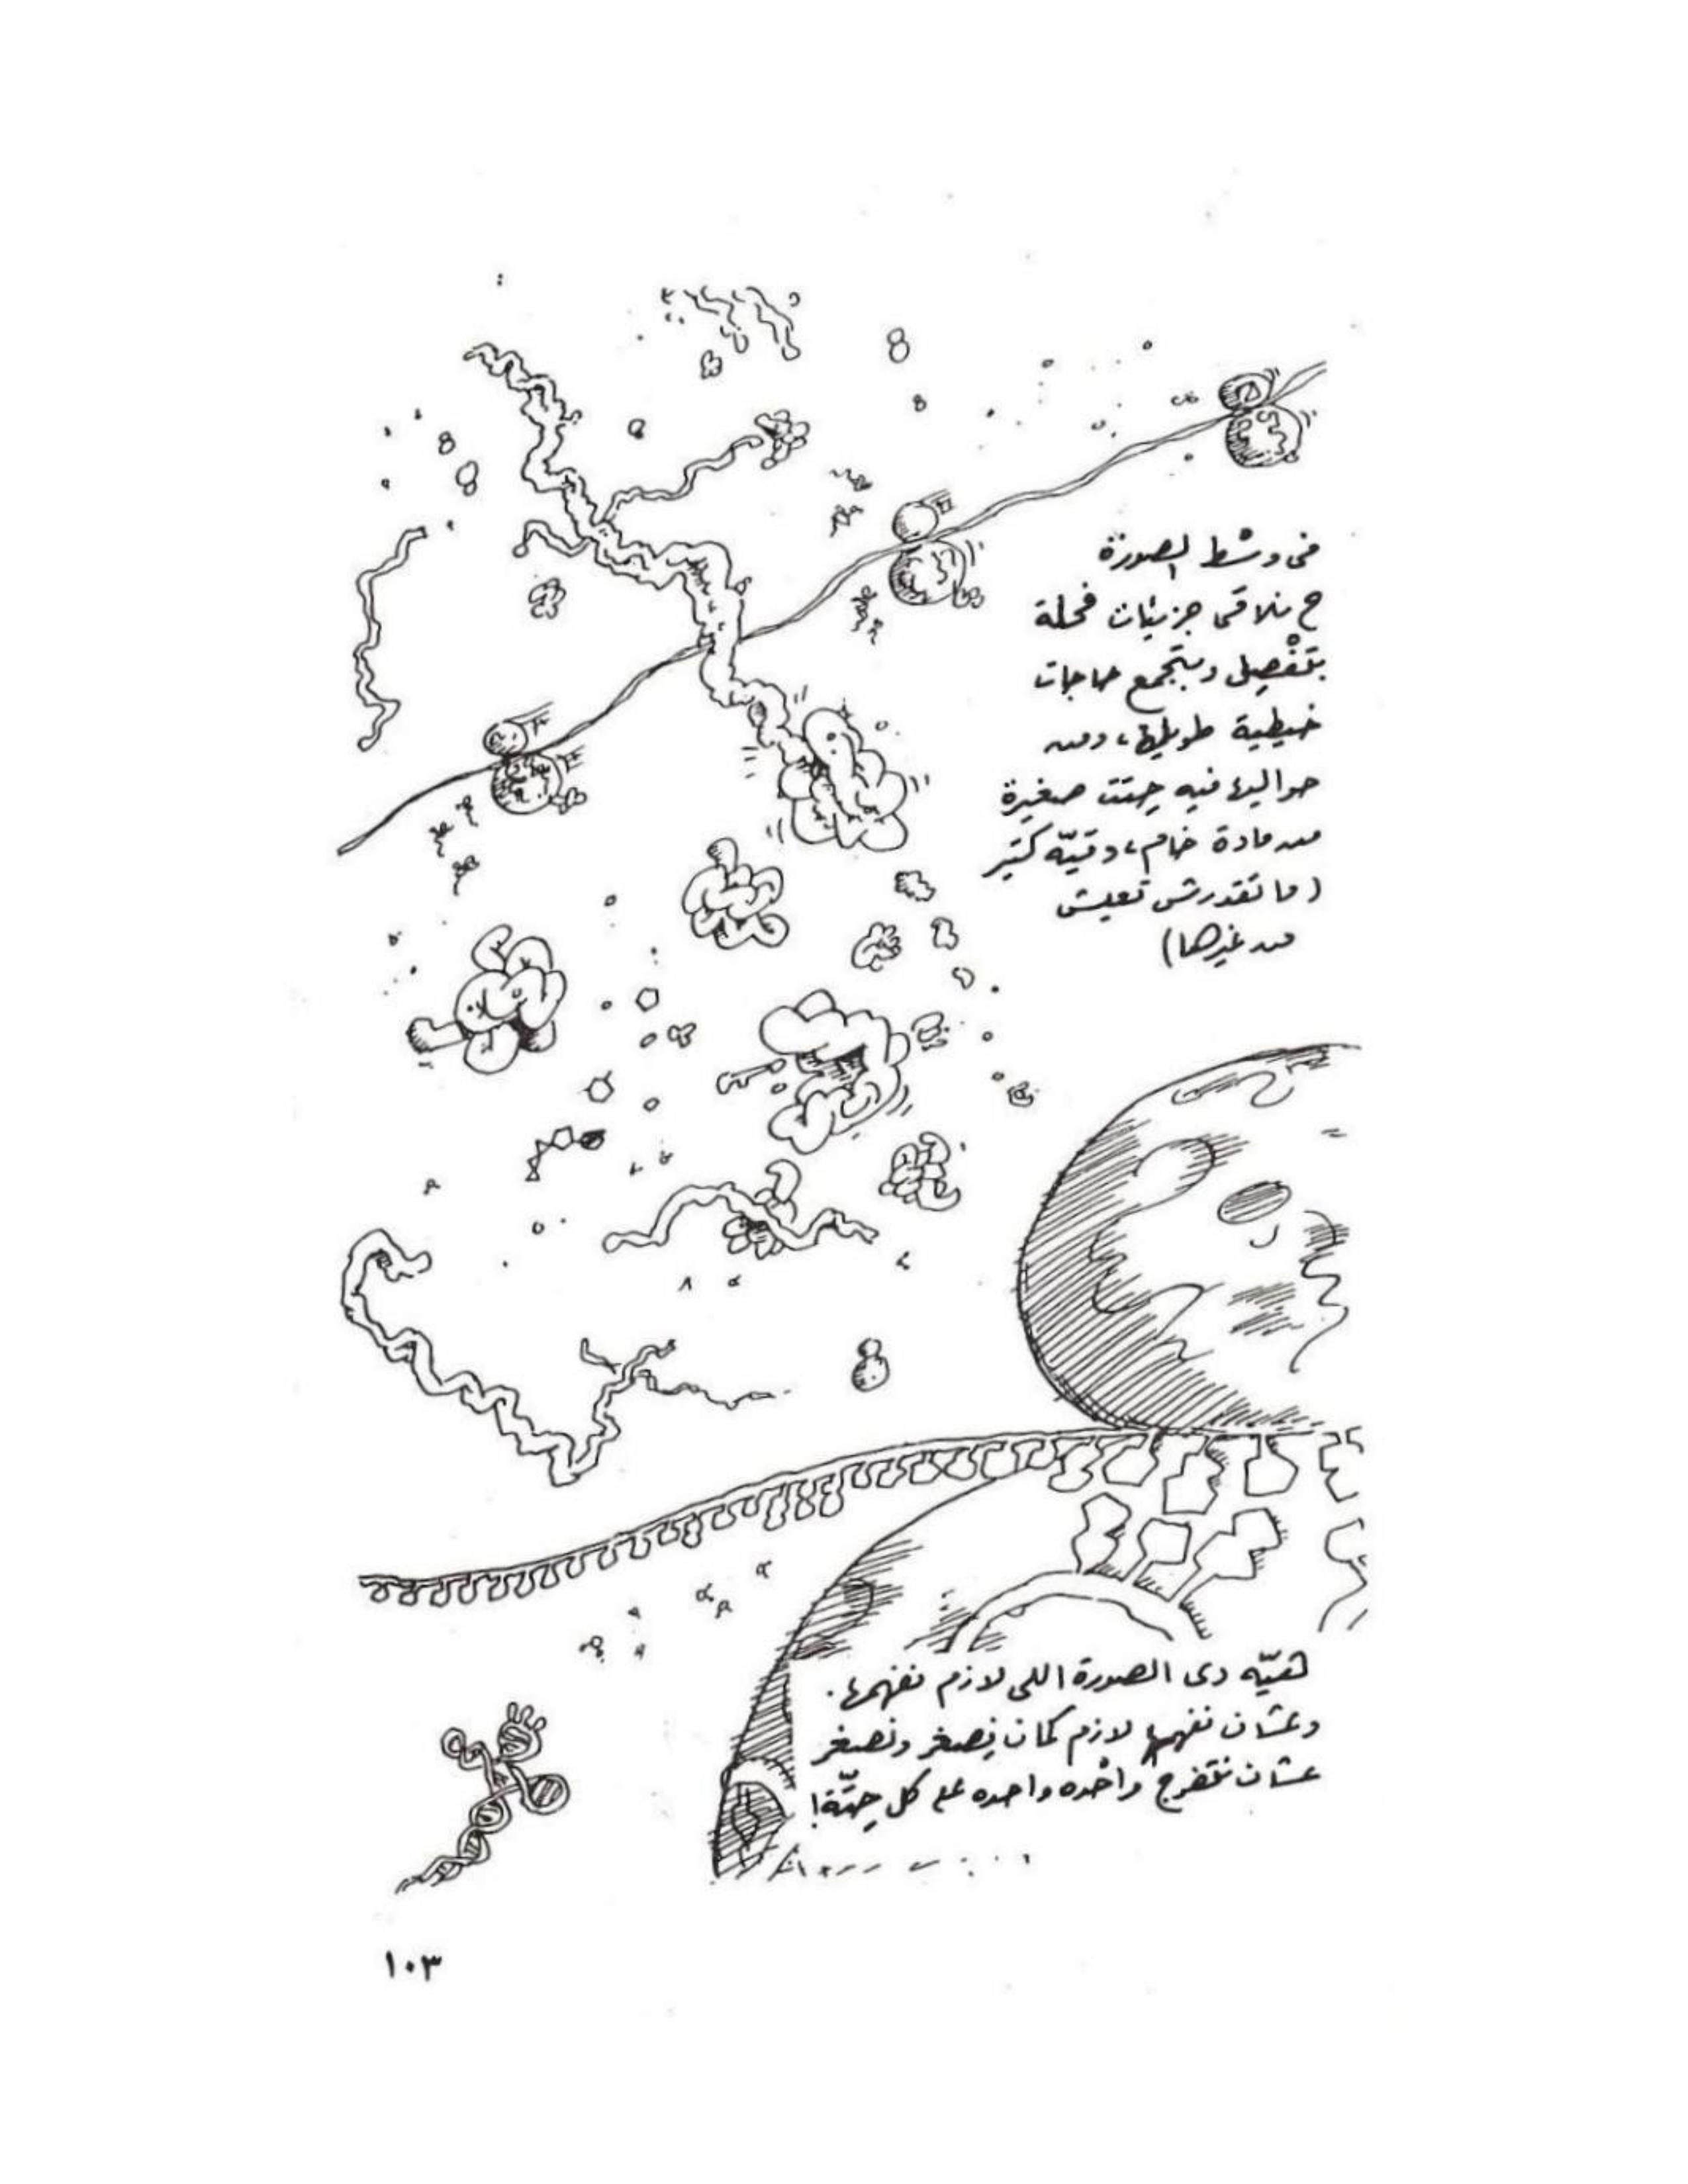 فى وسْط الصورة
ح نلاقى جزيئات فحلة
بتفْصِل وبتجمع حاجات
خيطية طويلة، ومن
حواليها فيه حِتت صغيرة
من مادة خام، وميّه كتير
(ما نقدرش نعيش
من غيرها)
هىّه دى الصورة اللى لازم نفهمها.
وعشان نفهمها لازم كمان نِصغر ونصغر
عشان نتفرج واحْده واحده على كل حِتّة!
١٠٣